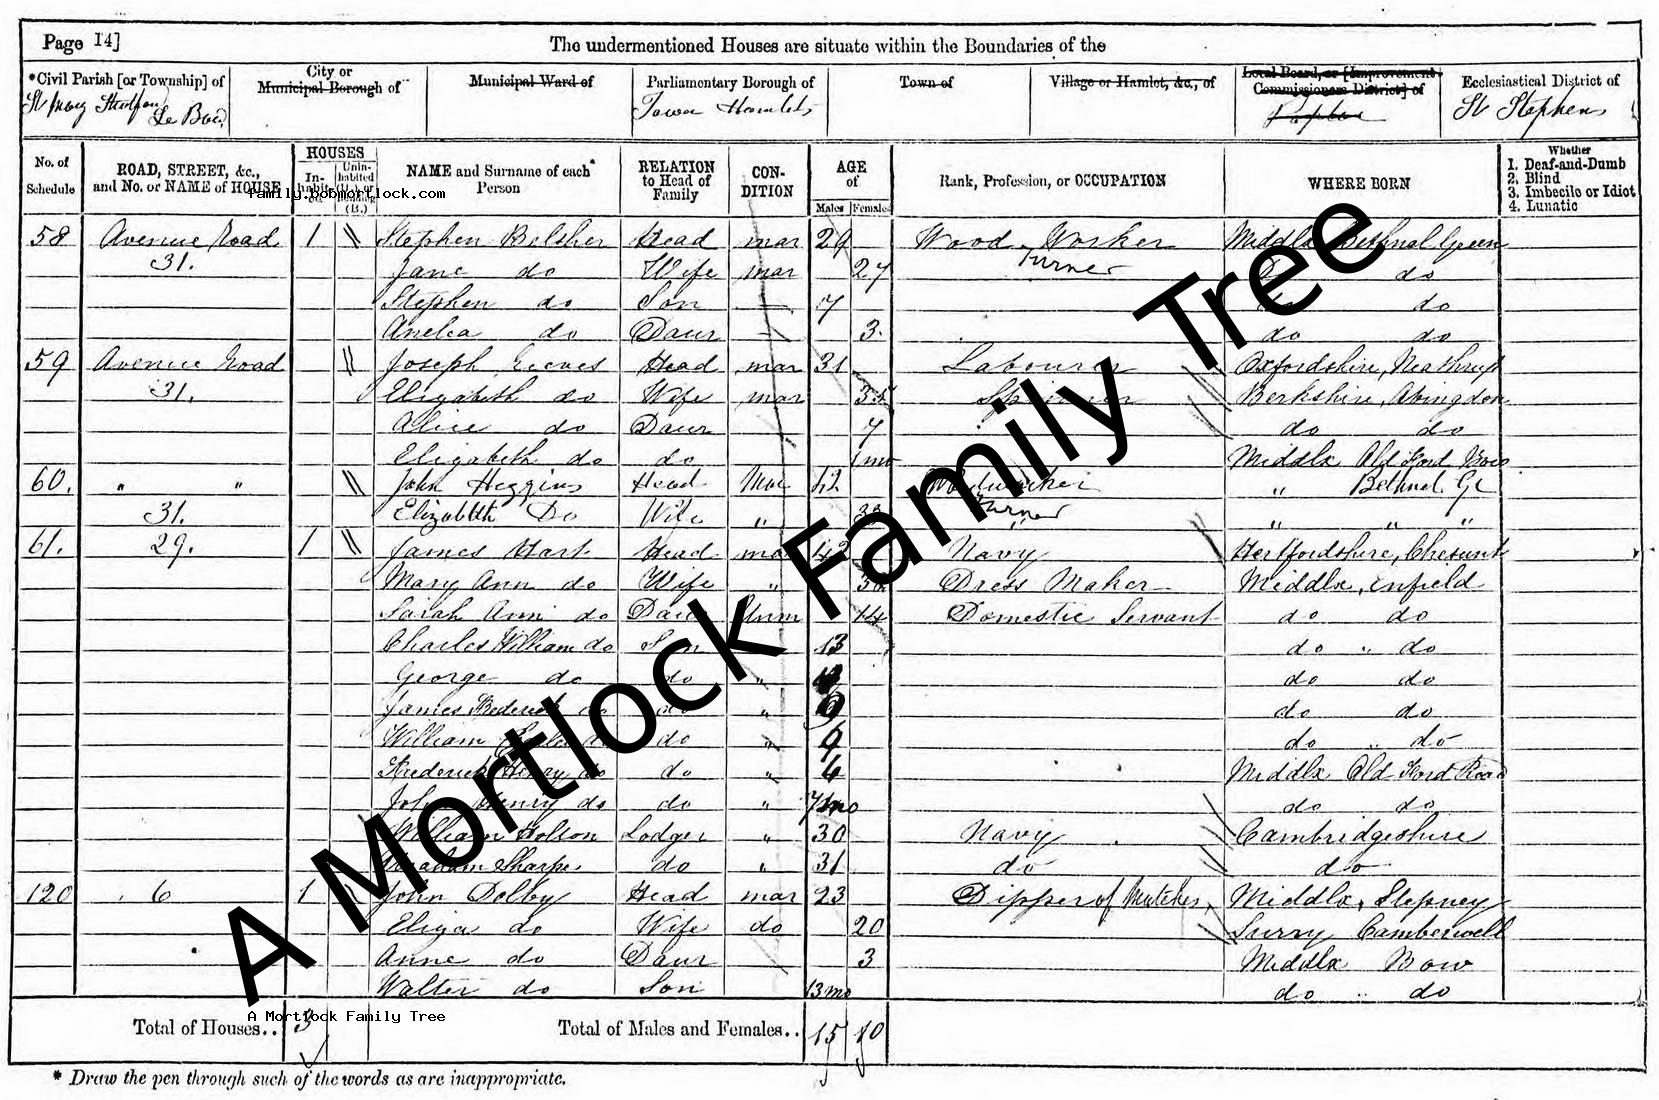 Page 14]
The undermentioned Houses are situate within the Boundaries of the
*Civil Parish [or Township] of
St Mary Stratford Le Bow
City or Municipal Borough of
Municipal Ward of
Parliamentary Borough of
Tower Hamlets
Town of
Village or Hamlet, &c., of
Local Board, or [Improvement Commissioners District] of
Poplar
Ecclesiastical District of
St Stephens
No. of Schedule
ROAD, STREET, &c., and No. or NAME of HOUSE
HOUSES
In-habit-ed
Unin-habited (U.), or Building (B.)
NAME and Surname of each Person
RELATION to Head of Family
CON-DITION
AGE of
Males
Females
Rank, Profession, or OCCUPATION
WHERE BORN
Whether
1. Deaf-and-Dumb
2. Blind
3. Imbecile or Idiot
4. Lunatic
family.bobmortlock.com
58 Avenue Road 1 Stephen Belsher Head mar 29 Wood Worker Middlx Bethnal Green
31. Jane do Wife mar 27 Turner do
Stephen do Son 7 do
Amelia do Daur 3. do do
59 Avenue Road Joseph Reeves Head mar 31 Labourer Oxfordshire,
31. Elizabeth do Wife mar Berkshire, Abingdon
Alice do Daur 7 do do
Elizabeth do do 1 mo Middlx Old Ford Bow
60. " " John Heggins Head Mar 42 Woodworker " Bethnal Gr
31. Elizabeth Do Wife " Turner " " "
61. 29. 1 James Hart Head mar 42 Navy Hertfordshire, Chesunt
Mary Ann do Wife " Dress Maker Middlx, Enfield
Sarah Ann do Daur Unm 14 Domestic Servant do do
Charles William do Son 13 do " do
George do do " do do
James Frederick do do " do do
William do do " 9 do " do
Frederick Henry do do " Middlx Old Ford Road
John Henry do do " 7 mo do do
William Holson Lodger " 30 Navy Cambridgeshire
Abraham Sharpe do " 31 do do
120 6 1 John Delby Head mar 23 Dipper of Matches, Middlx, Stepney
Eliza do Wife do 20 Surry Camberwell
Anne do Daur 3 Middlx Bow
Walter do Son 13 mo do " do
Total of Houses.. 3
Total of Males and Females.. 15 10
A Mortlock Family Tree
A Mortlock Family Tree
* Draw the pen through such of the words as are inappropriate.